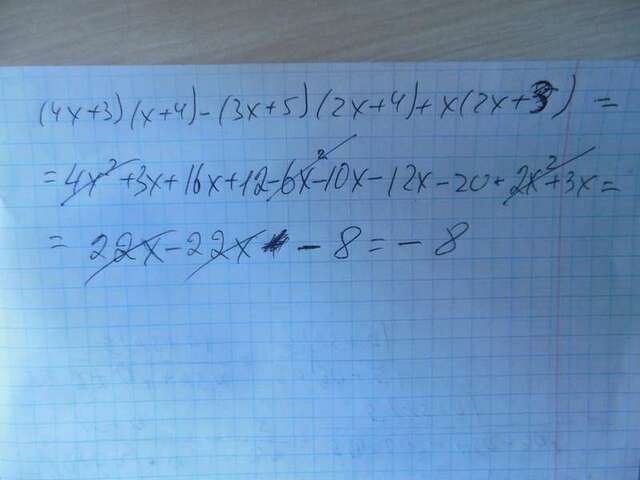 (4x+3)(x+4)-(3x+5)(2x+4)+x(2x+3)=
=4x²+3x+16x+12-6x²-10x-12x-20+2x²+3x=
=22x-22x-8=-8